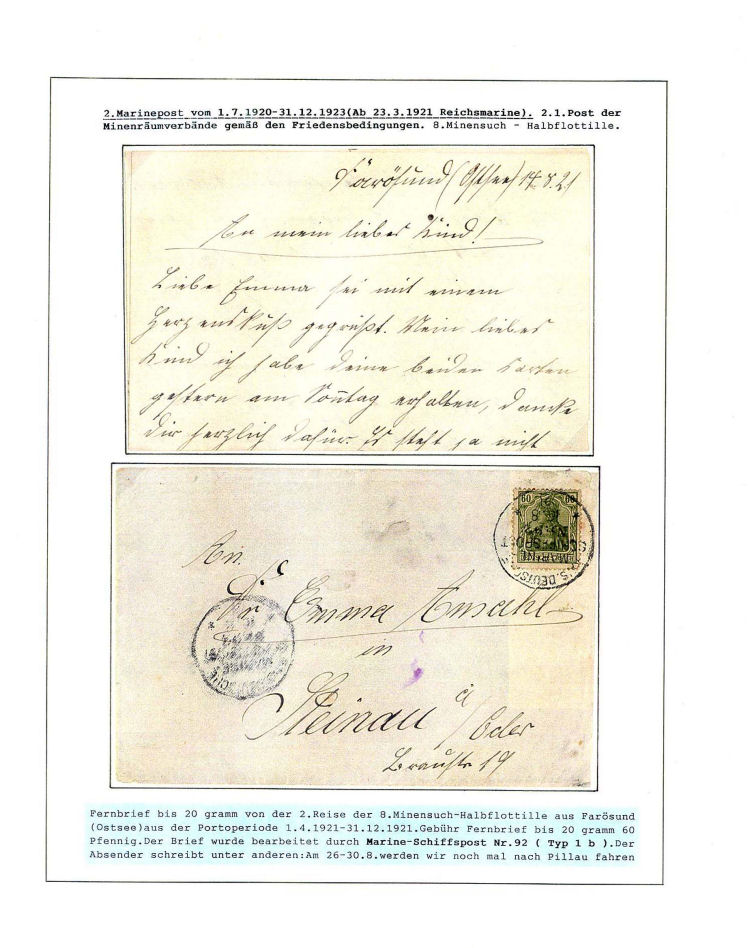 2.Marinepost vom 1.7.1920-31.12.1923(Ab 23.3.1921 Reichsmarine). 2.1.Post der
Minenräumverbände gemäß den Friedensbedingungen. 8.Minensuch - Halbflottille.
Farösund (Ostsee) 14.8.21
An mein liebes Kind!
Liebe Emma sei mit einem
Herzenskuß gegrüßt. Mein liebes
Kind ich habe deine beiden Karten
gestern am Sonntag erhalten, danke
dir herzlich dafür. Es steht ja nicht
60 60
MARINE
SCHIFFSPOST
An
Emma
in
Steinau a/ Oder
Braustr 19
Fernbrief bis 20 gramm von der 2.Reise der 8.Minensuch-Halbflottille aus Farösund
(Ostsee)aus der Portoperiode 1.4.1921-31.12.1921.Gebühr Fernbrief bis 20 gramm 60
Pfennig.Der Brief wurde bearbeitet durch Marine-Schiffspost Nr.92 ( Typ 1 b ).Der
Absender schreibt unter anderen:Am 26-30.8.werden wir noch mal nach Pillau fahren